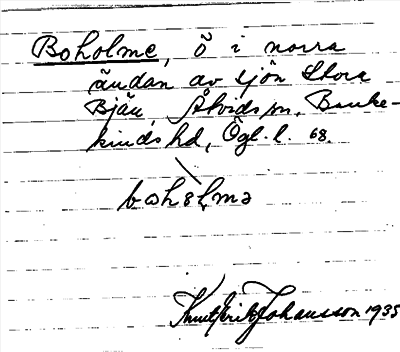 Boholme, ö i norra
ändan av sjön Stora
Bjän, Åtvids sn, Banke-
kinds hd, Ögl. l. 68.
Knut Erik Johansson 1935